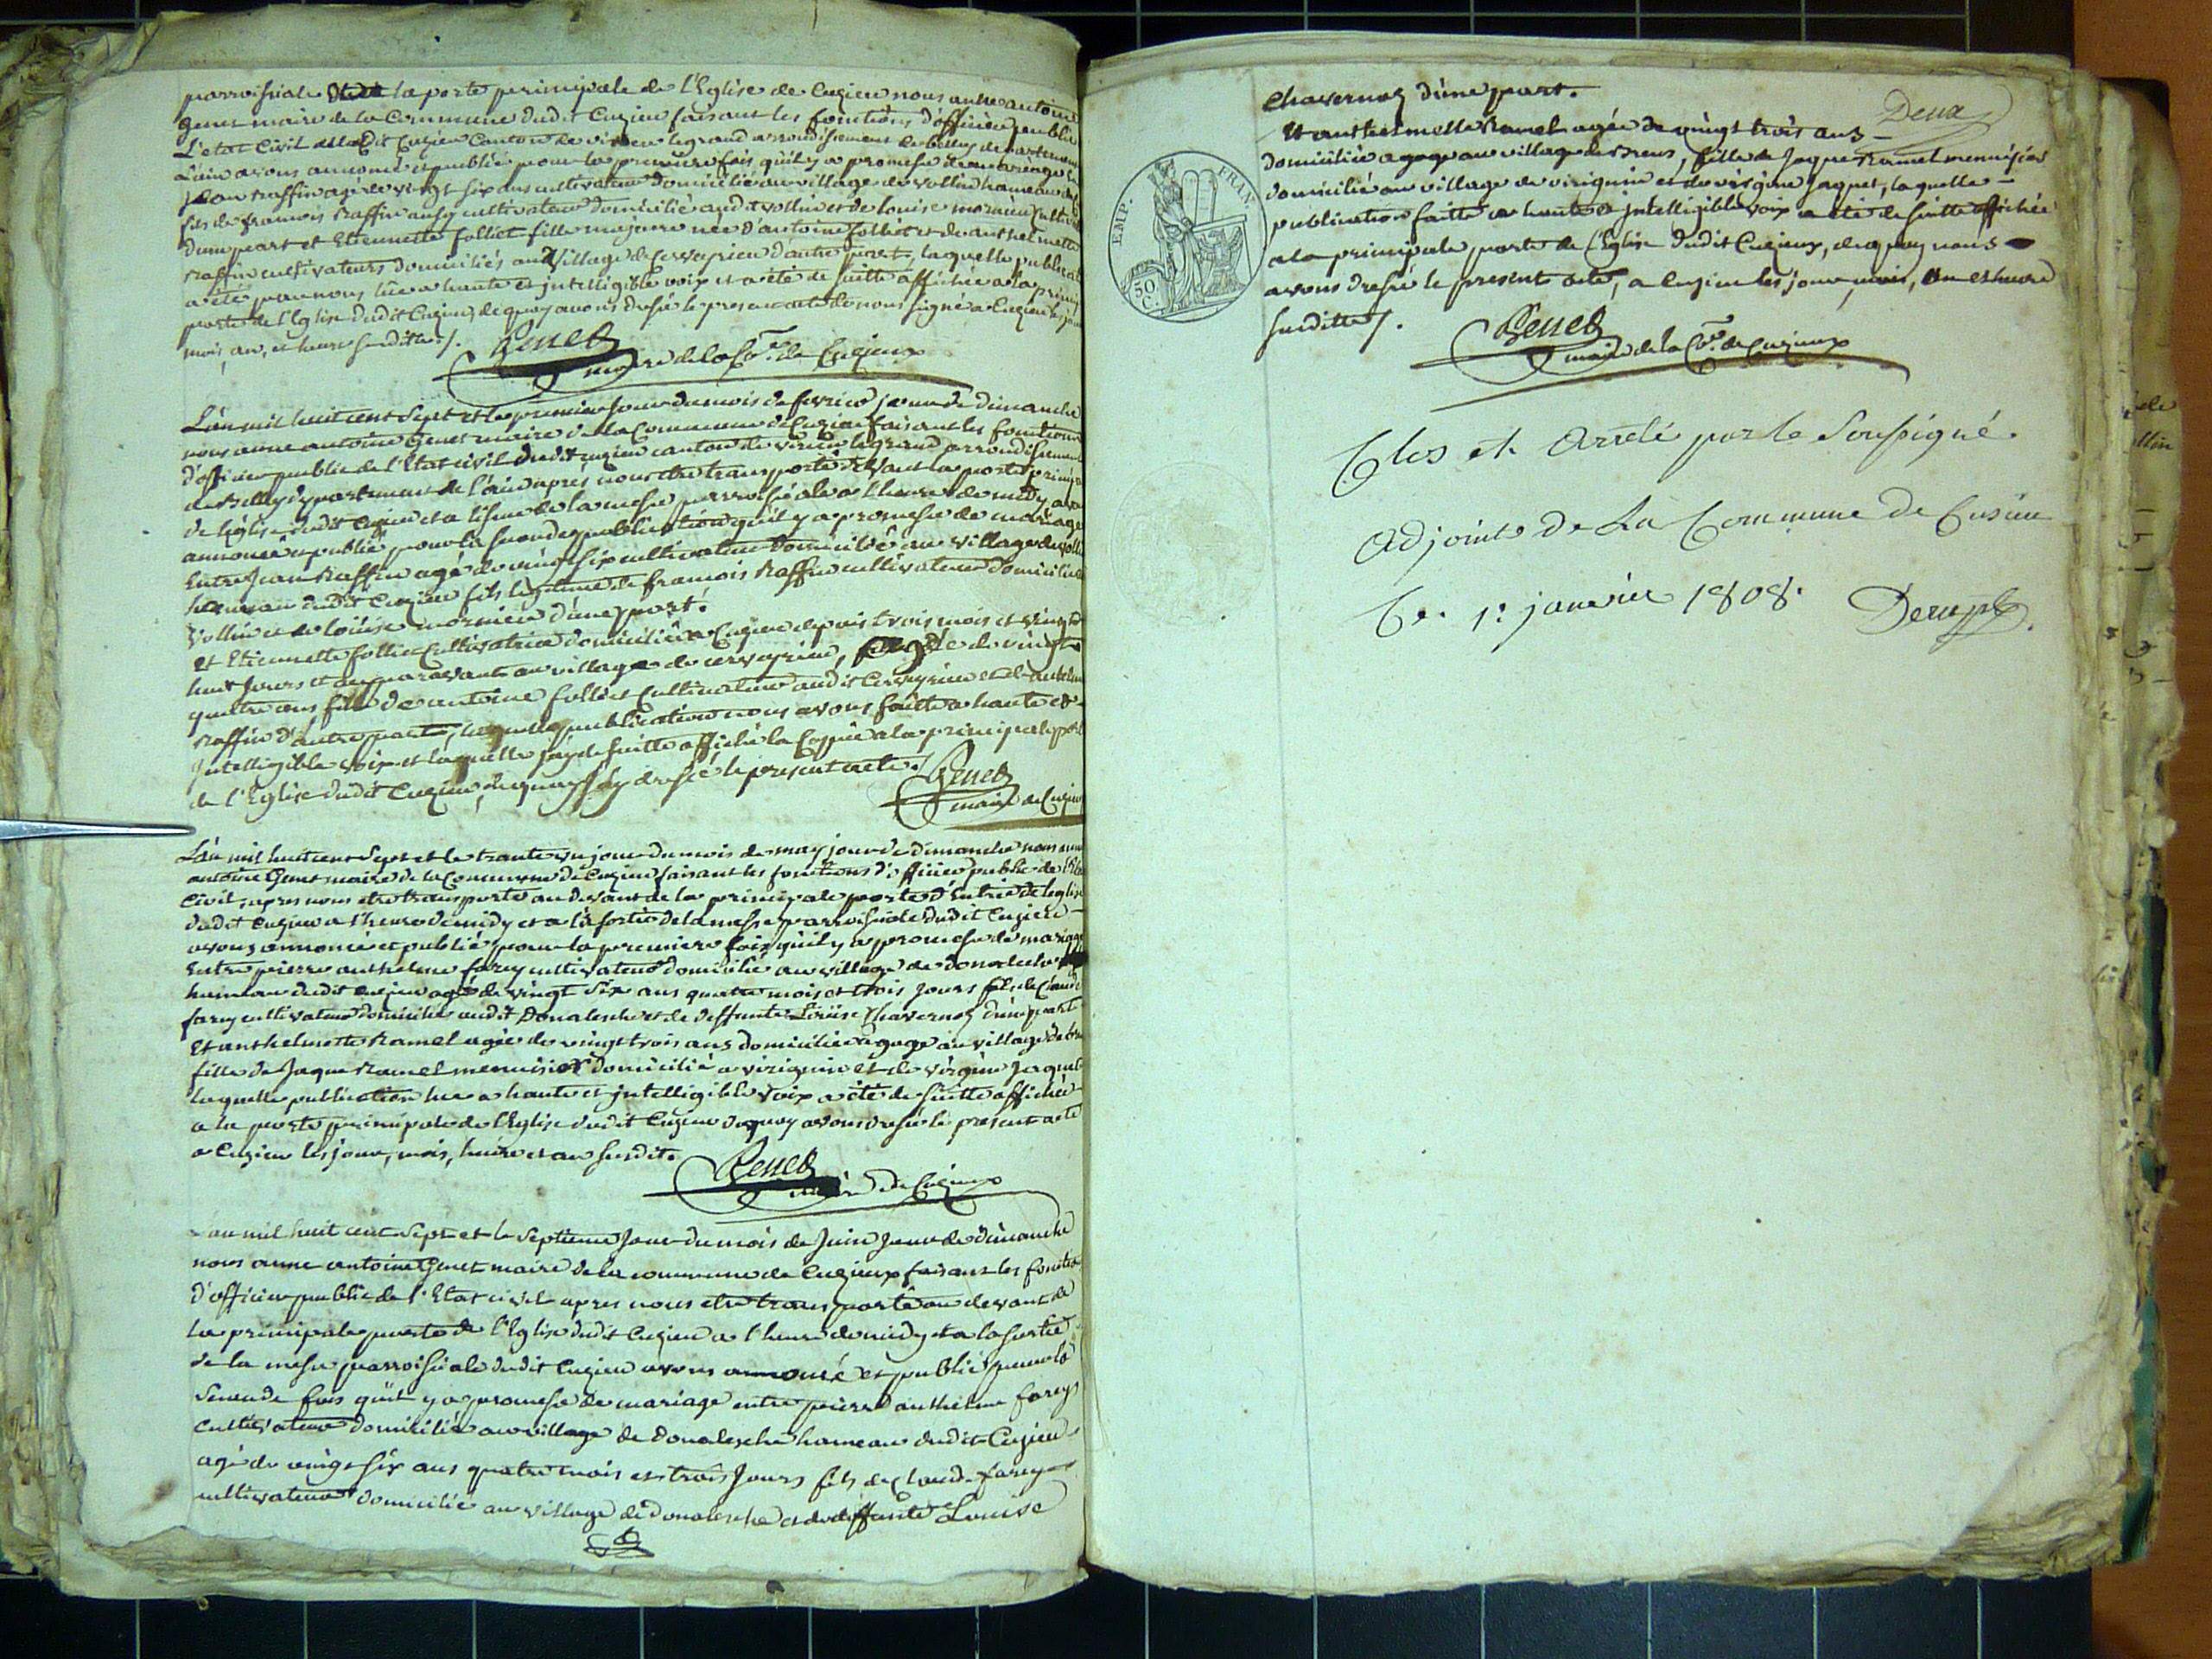 parroissiale la porte principale de l'Eglise de Cuzieu nous anne antoine
genet maire de la Commune dudit Cuzieu faisant les fonctions d'officier public
L'etat Civil dudit Cuzieu Canton de virieu legrand arrondissement de belley departement
L'ain avons annoncé et publié pour la premiere fois quil y a promesse de mariage
jean Raffin agé de vingt six ans cultivateur domicilié au village de vollin hameau
fils de francois Raffin aussy cultivateur domicilié audit vollin et de louise mornieu
d'une part et Etiennette folliet fille majeure née d'antoine folliet et de anthelmette
Raffin cultivateurs domiciliés au village de cerveyrieu d'autre part, laquelle
a été par nous lue a haute et jntelligible voix et a été de suitte affichée a la
porte de l'Eglise dudit Cuzieu, de quoy avons dressé le present acte nous signé a Cuzieu les
mois, an, et heure susdittes /.
Genet
maire de la Cne de Cuzieux
L'an mil huit cent Sept et le premier Jour du mois de fevrier jour de dimanche
nous anne antoine Genet maire de la Commune de Cuzieu faisant les fonctions
d'officier public de l'Etat civil dudit cuzieu canton de virieu legrand arrondissement
de Belley departement de l'ain apres nous etre transporté devant la porte
de l'église dudit cuzieu et a lissue de la messe parroissiale a l'heure de midy
annoncé et publié pour la seconde publication quil y a promesse de mariage
Entre Jean Raffin agé de vingt six cultivateur domicilié au village de
hameau dudit Cuzieu fils legitime de francois Raffin cultivateur domicilié
Vollin et de loüise mornieu d'une part.
Et Etiennette folliet Cultivatrice domiciliée a Cuzieu depuis trois mois et vingt
huit Jours et auparavant au village de cerveyrieu, agée de vingt
quatre ans fille de antoine folliet Cultivateur audit Cerveyrieu et d'
Raffin d'autre part, laquelle publication nous avons faitte a haute et
jntelligible voix et laquelle jay de suitte affiché la Coppie a la principale
de l'Eglise dudit Cuzieu, de quoy Jay dressé le present acte /.
Genet
maire de Cuzieu
L'an mil huit cent Sept et le trante un jour du mois de may jour de dimanche nous anne
antoine Genet maire de la Commune de Cuzieu faisant les fonctions d'officier public de
Civil, apres nous etre transporté au devant de la principale porte d'Entrée de leglise
dudit Cuzieu a l'heure de midy et a la sortie de la messe parroissiale dudit Cuzieu –
avons annoncé et publié pour la premiere fois quil y a promesse de mariage
Entre pierre anthelme farey cultivateur domicilié au village de
hameau dudit Cuzieu agé de vingt six ans quatre mois et trois jours fils de Claude
farey cultivateur domicilié audit Donalesche et de deffunte Loüise Chavernoz d'une part
Et anthelmette Ramel agée de vingt trois ans domiciliée a gage au village de
fille de Jaque Ramel menuisier domicilié a virignin et de virgine Jaquet
laquelle publication lue a haute et jntelligible voix a été de suitte affichée
a la porte principale de l'Eglise dudit Cuzieu de quoy avons dressé le present acte
a Cuzieu les jour, mois, heure et an susdit.
Genet
maire de Cuzieux
L'an mil huit cent Sept et le Septieme Jour du mois de Juin Jour de dimanche
nous anne antoine Genet maire de la commune de Cuzieux faisant les
d'officier public de l'Etat civil apres nous etre transporté au devant de
la principale porte de l'Eglise dudit Cuzieu a l'heure de midy et a la sortie
de la messe parroissiale dudit Cuzieu avons annoncé et publié pour la
Seconde fois quil y a promesse de mariage entre pierre anthelme farey
Cultivateur domicilié au village de donalesche hameau dudit Cuzieu
agé de vingt six ans quatre mois et trois Jours fils de Claude farey
cultivateur domicilié au village de donalesche et de deffunte Louise
Chavernoz d'une part.
Deux
Et anthelmette Ramel agée de vingt trois ans –
domiciliée a gage au village, fille de Jaque Ramel menuisier
domicilié au village de virignin et de virgine Jaquet, laquelle –
publication faitte a haute et jntelligible voix a été de suitte affichée
a la principale porte de l'Eglise dudit Cuzieux, de quoy nous –
avons dressé le present acte, a Cuzieu les jour, mois, an et heure
susdittes /.
EMP. FRAN.
50 C.
Genet
maire de la Cne de Cuzieux
Clos et Arrêté par le Soussigné.
Adjoint de La Commune de Cusieu
Ce. 1er janvier 1808.